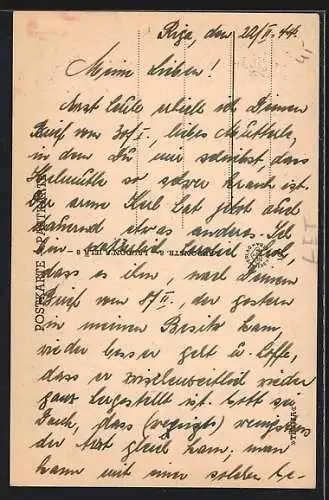 Riga, den 20/II. 44.
Meine Lieben!
Erst heute erhielt ich Deinen
Brief vom 30/I., liebes Mutterle,
in dem Du mir schreibst, dass
Helmuth so schwer krank ist.
Der arme Kerl hat jetzt auch
dauernd etwas anderes. Ich
bin natürlich heilfroh,
dass es ihm, nach Deinem
Brief vom 5/II., der gestern
in meinen Besitz kam,
wieder besser geht u. hoffe,
dass er zwischenzeitlich wieder
ganz hergestellt ist. Gott sei
Dank, dass wenigstens
der Arzt gleich kam; man
kann mit einer solchen Ge-
POSTKARTE PASTKARTE